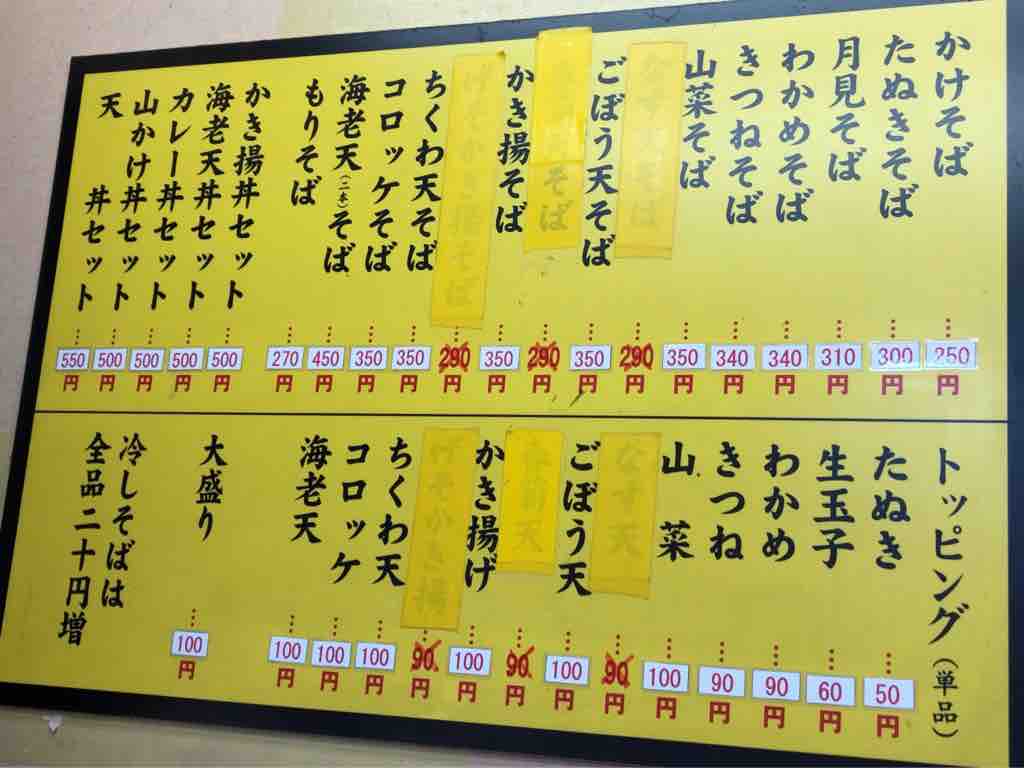 かけそば 250円
たぬきそば 300円
月見そば 310円
わかめそば 340円
きつねそば 340円
山菜そば 350円
なす天そば 290円
ごぼう天そば 350円
そば 290円
かき揚そば 350円
げそかき揚そば 290円
ちくわ天そば 350円
コロッケそば 350円
海老天(二本)そば 450円
もりそば 270円
かき揚丼セット 500円
海老天丼セット 500円
カレー丼セット 500円
山かけ丼セット 500円
天丼セット 550円
トッピング(単品)
たぬき 50円
生玉子 60円
わかめ 90円
きつね 90円
山菜 100円
なす天 90円
ごぼう天 100円
春菊天 90円
かき揚げ 100円
げそかき揚 90円
ちくわ天 100円
コロッケ 100円
海老天 100円
大盛り 100円
冷しそばは
全品二十円増